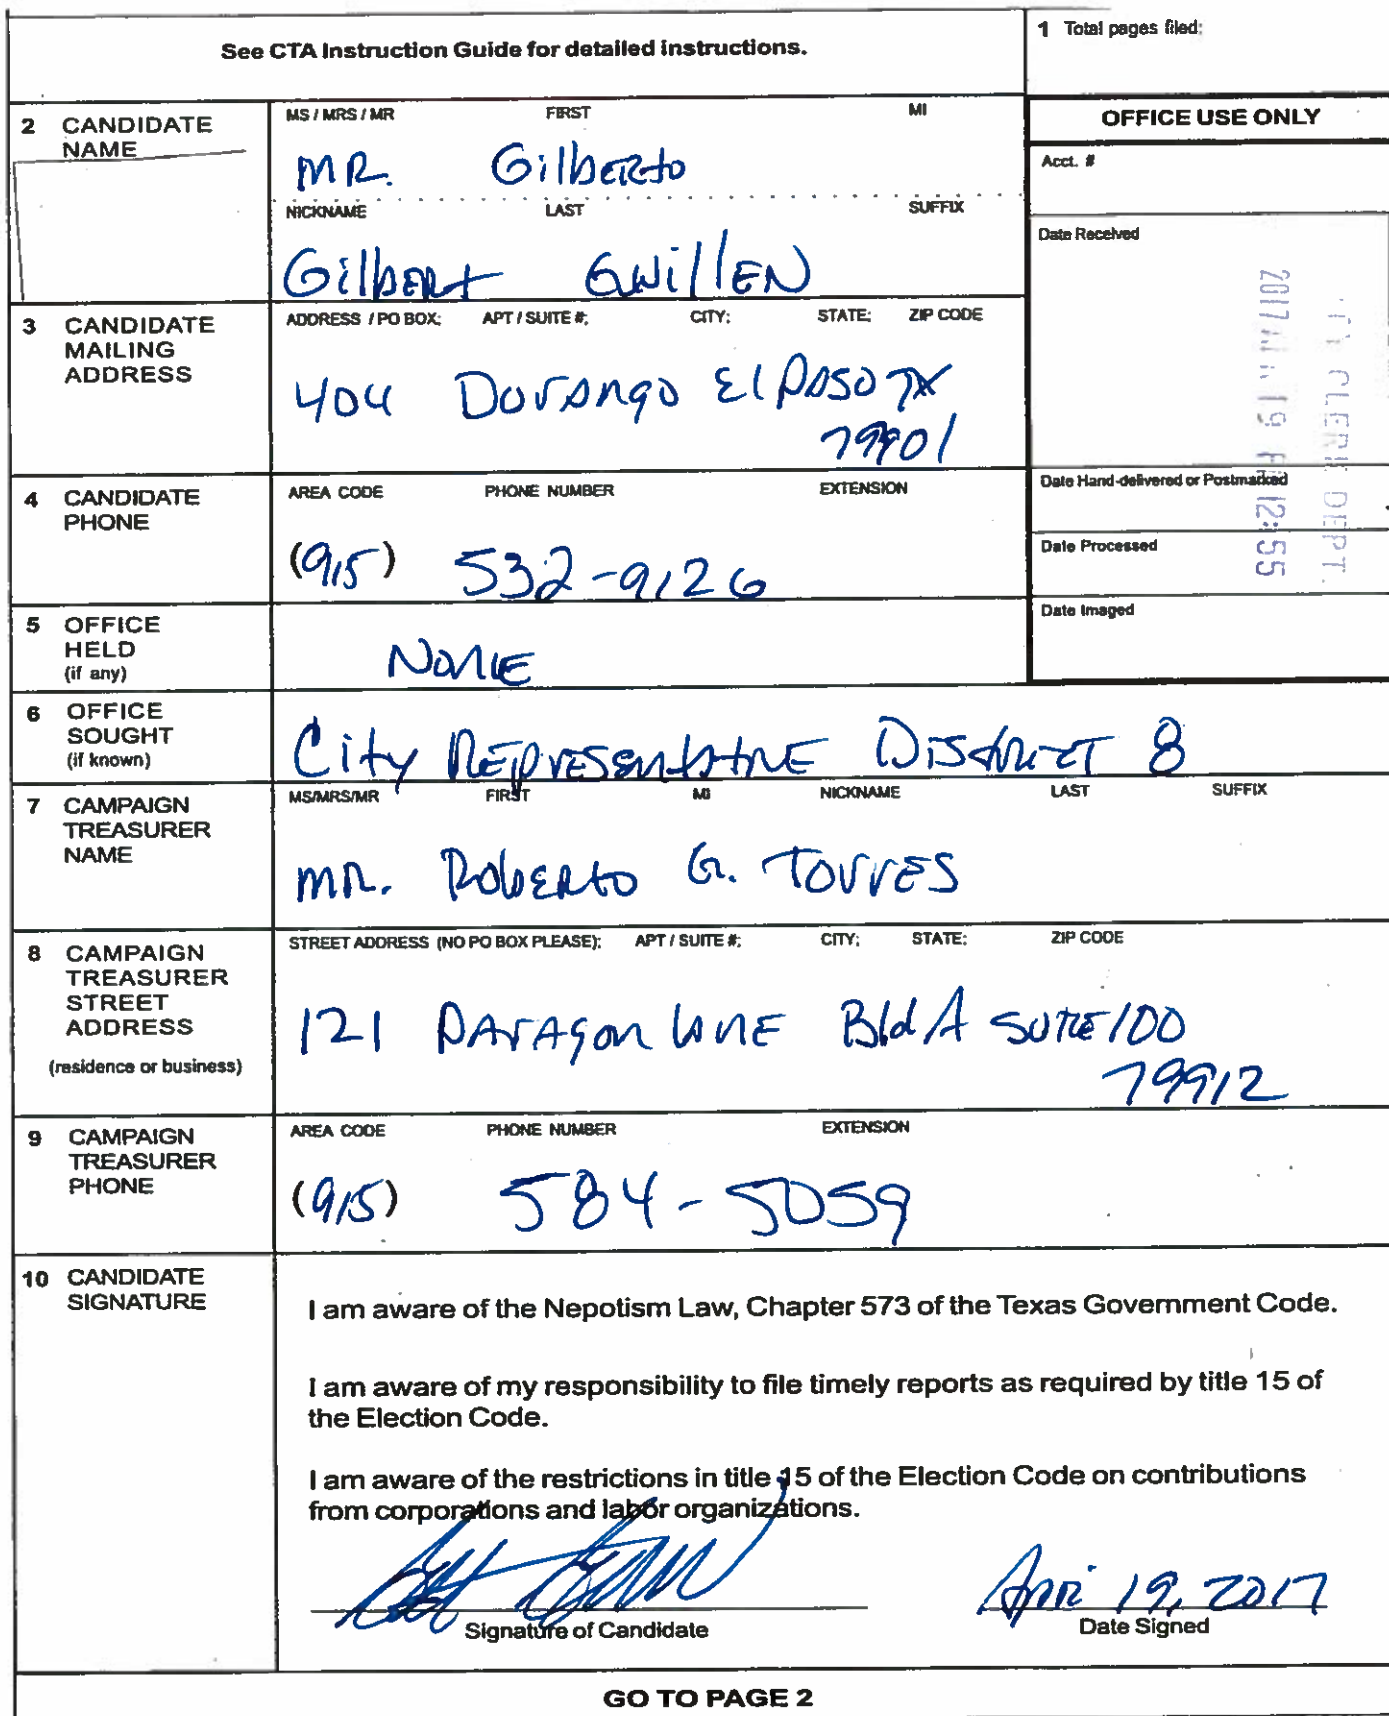 See CTA Instruction Guide for detailed instructions.
1 Total pages filed:
2 CANDIDATE NAME
MS / MRS / MR FIRST MI
MR. Gilberto
NICKNAME LAST SUFFIX
Gilbert Guillen
OFFICE USE ONLY
Acct. #
Date Received
2017 19 12:55
CLERK DEPT.
Date Hand-delivered or Postmarked
Date Processed
Date Imaged
3 CANDIDATE MAILING ADDRESS
ADDRESS / PO BOX; APT / SUITE #; CITY; STATE; ZIP CODE
404 Durango El Paso TX
79901
4 CANDIDATE PHONE
AREA CODE PHONE NUMBER EXTENSION
(915) 532-9126
5 OFFICE HELD (if any)
None
6 OFFICE SOUGHT (if known)
City Representative District 8
7 CAMPAIGN TREASURER NAME
MS/MRS/MR FIRST MI NICKNAME LAST SUFFIX
MR. Roberto G. Torres
8 CAMPAIGN TREASURER STREET ADDRESS (residence or business)
STREET ADDRESS (NO PO BOX PLEASE); APT / SUITE #; CITY; STATE; ZIP CODE
121 Paragon Lane Bld A Suite 100
79912
9 CAMPAIGN TREASURER PHONE
AREA CODE PHONE NUMBER EXTENSION
(915) 584-5059
10 CANDIDATE SIGNATURE
I am aware of the Nepotism Law, Chapter 573 of the Texas Government Code.
I am aware of my responsibility to file timely reports as required by title 15 of
the Election Code.
I am aware of the restrictions in title 15 of the Election Code on contributions
from corporations and labor organizations.
19, 2017
Signature of Candidate Date Signed
GO TO PAGE 2